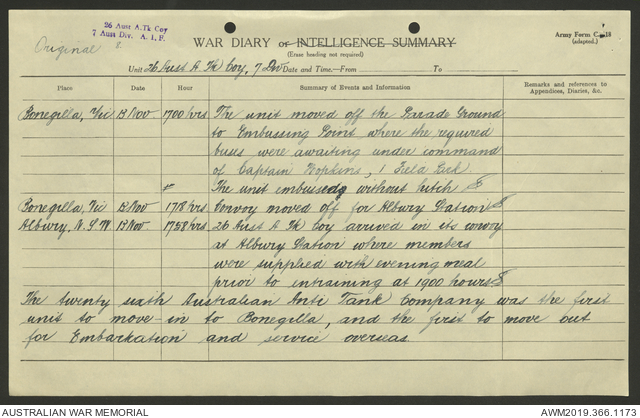 26 Aust A.Tk Coy
7 Aust Div. A. I. F.
Original
WAR DIARY or INTELLIGENCE SUMMARY
(Erase heading not required)
Army Form C. 18
(adapted.)
Unit 26 Aust A Tk Coy, 7 Div Date and Time.—From To
Place Date Hour Summary of Events and Information Remarks and references to
Appendices, Diaries, &c.
Bonegilla, Vic Nov 1700 hrs The unit moved off the Parade Ground
to Embussing Point where the required
buses were awaiting under command
of Captain Hopkins, 1 Field
The unit embussed without hitch
Bonegilla, Vic Nov 1718 hrs Convoy moved off for Albury Station
Albury, N.S.W. Nov 1758 hrs 26 Aust A Tk Coy arrived in its convoy
at Albury Station where members
were supplied with evening meal
prior to entraining at 1900 hours
The twenty sixth Australian Anti Tank Company was the first
unit to move-in to Bonegilla, and the first to move out
for Embarkation and service overseas.
AUSTRALIAN WAR MEMORIAL
AWM2019.366.1173